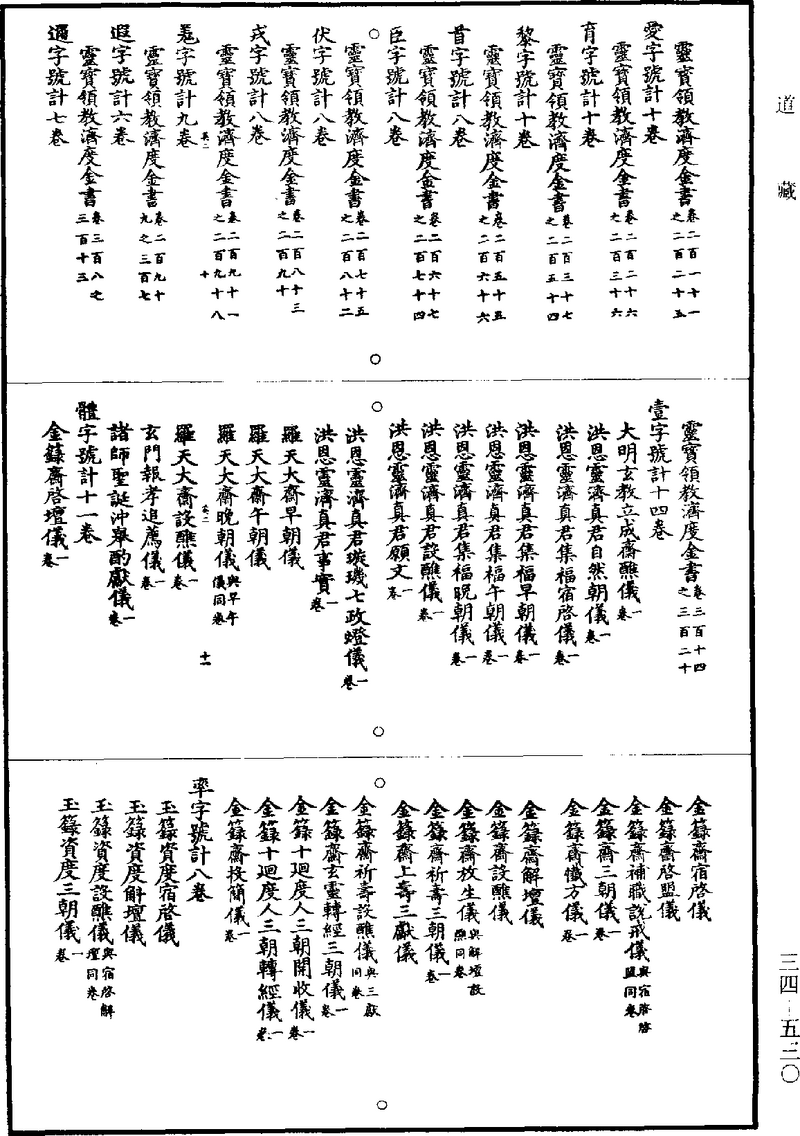 道藏
靈寶領教濟度金書卷二百一十一之二百二十五
愛字號計十卷
靈寶領教濟度金書卷二百二十六之二百三十六
育字號計十卷
靈寶領教濟度金書卷二百三十七之二百五十四
黎字號計十卷
靈寶領教濟度金書卷二百五十五之二百六十六
首字號計八卷
靈寶領教濟度金書卷二百六十七之二百七十四
臣字號計八卷
靈寶領教濟度金書卷二百七十五之二百八十二
伏字號計八卷
靈寶領教濟度金書卷二百八十三之二百九十
戎字號計八卷
靈寶領教濟度金書卷二百九十一之二百九十八
羌字號計九卷
靈寶領教濟度金書卷二百九十九之三百七
遐字號計六卷
靈寶領教濟度金書卷三百八之三百十三
邇字號計七卷
靈寶領教濟度金書卷三百十四之三百二十
壹字號計十四卷
大明玄教立成齋醮儀一卷
洪恩靈濟真君自然朝儀一卷
洪恩靈濟真君集福宿啓儀一卷
洪恩靈濟真君集福早朝儀一卷
洪恩靈濟真君集福午朝儀一卷
洪恩靈濟真君集福晚朝儀一卷
洪恩靈濟真君設醮儀一卷
洪恩靈濟真君願文一卷
洪恩靈濟真君璇璣七政燈儀一卷
洪恩靈濟真君事實一卷
羅天大齋早朝儀
羅天大齋午朝儀
羅天大齋晚朝儀與早午儀同卷
十一
羅天大齋設醮儀一卷
玄門報孝追薦儀一卷
諸師聖誕沖舉酌獻儀一卷
體字號計十一卷
金籙齋啓壇儀一卷
金籙齋宿啓儀
金籙齋啓盟儀
金籙齋補職說戒儀與宿啓啓盟同卷
金籙齋三朝儀一卷
金籙齋懺方儀一卷
金籙齋解壇儀
金籙齋設醮儀
金籙齋放生儀與解壇設醮同卷
金籙齋祈壽三朝儀一卷
金籙齋上壽三獻儀
金籙齋祈壽設醮儀與三獻同卷
金籙齋玄靈轉經三朝儀一卷
金籙十迴度人三朝開收儀一卷
金籙十迴度人三朝轉經儀一卷
金籙齋投簡儀一卷
率字號計八卷
玉籙資度宿啓儀
玉籙資度解壇儀
玉籙資度設醮儀與宿啓解壇同卷
玉籙資度三朝儀一卷
三四－五三〇